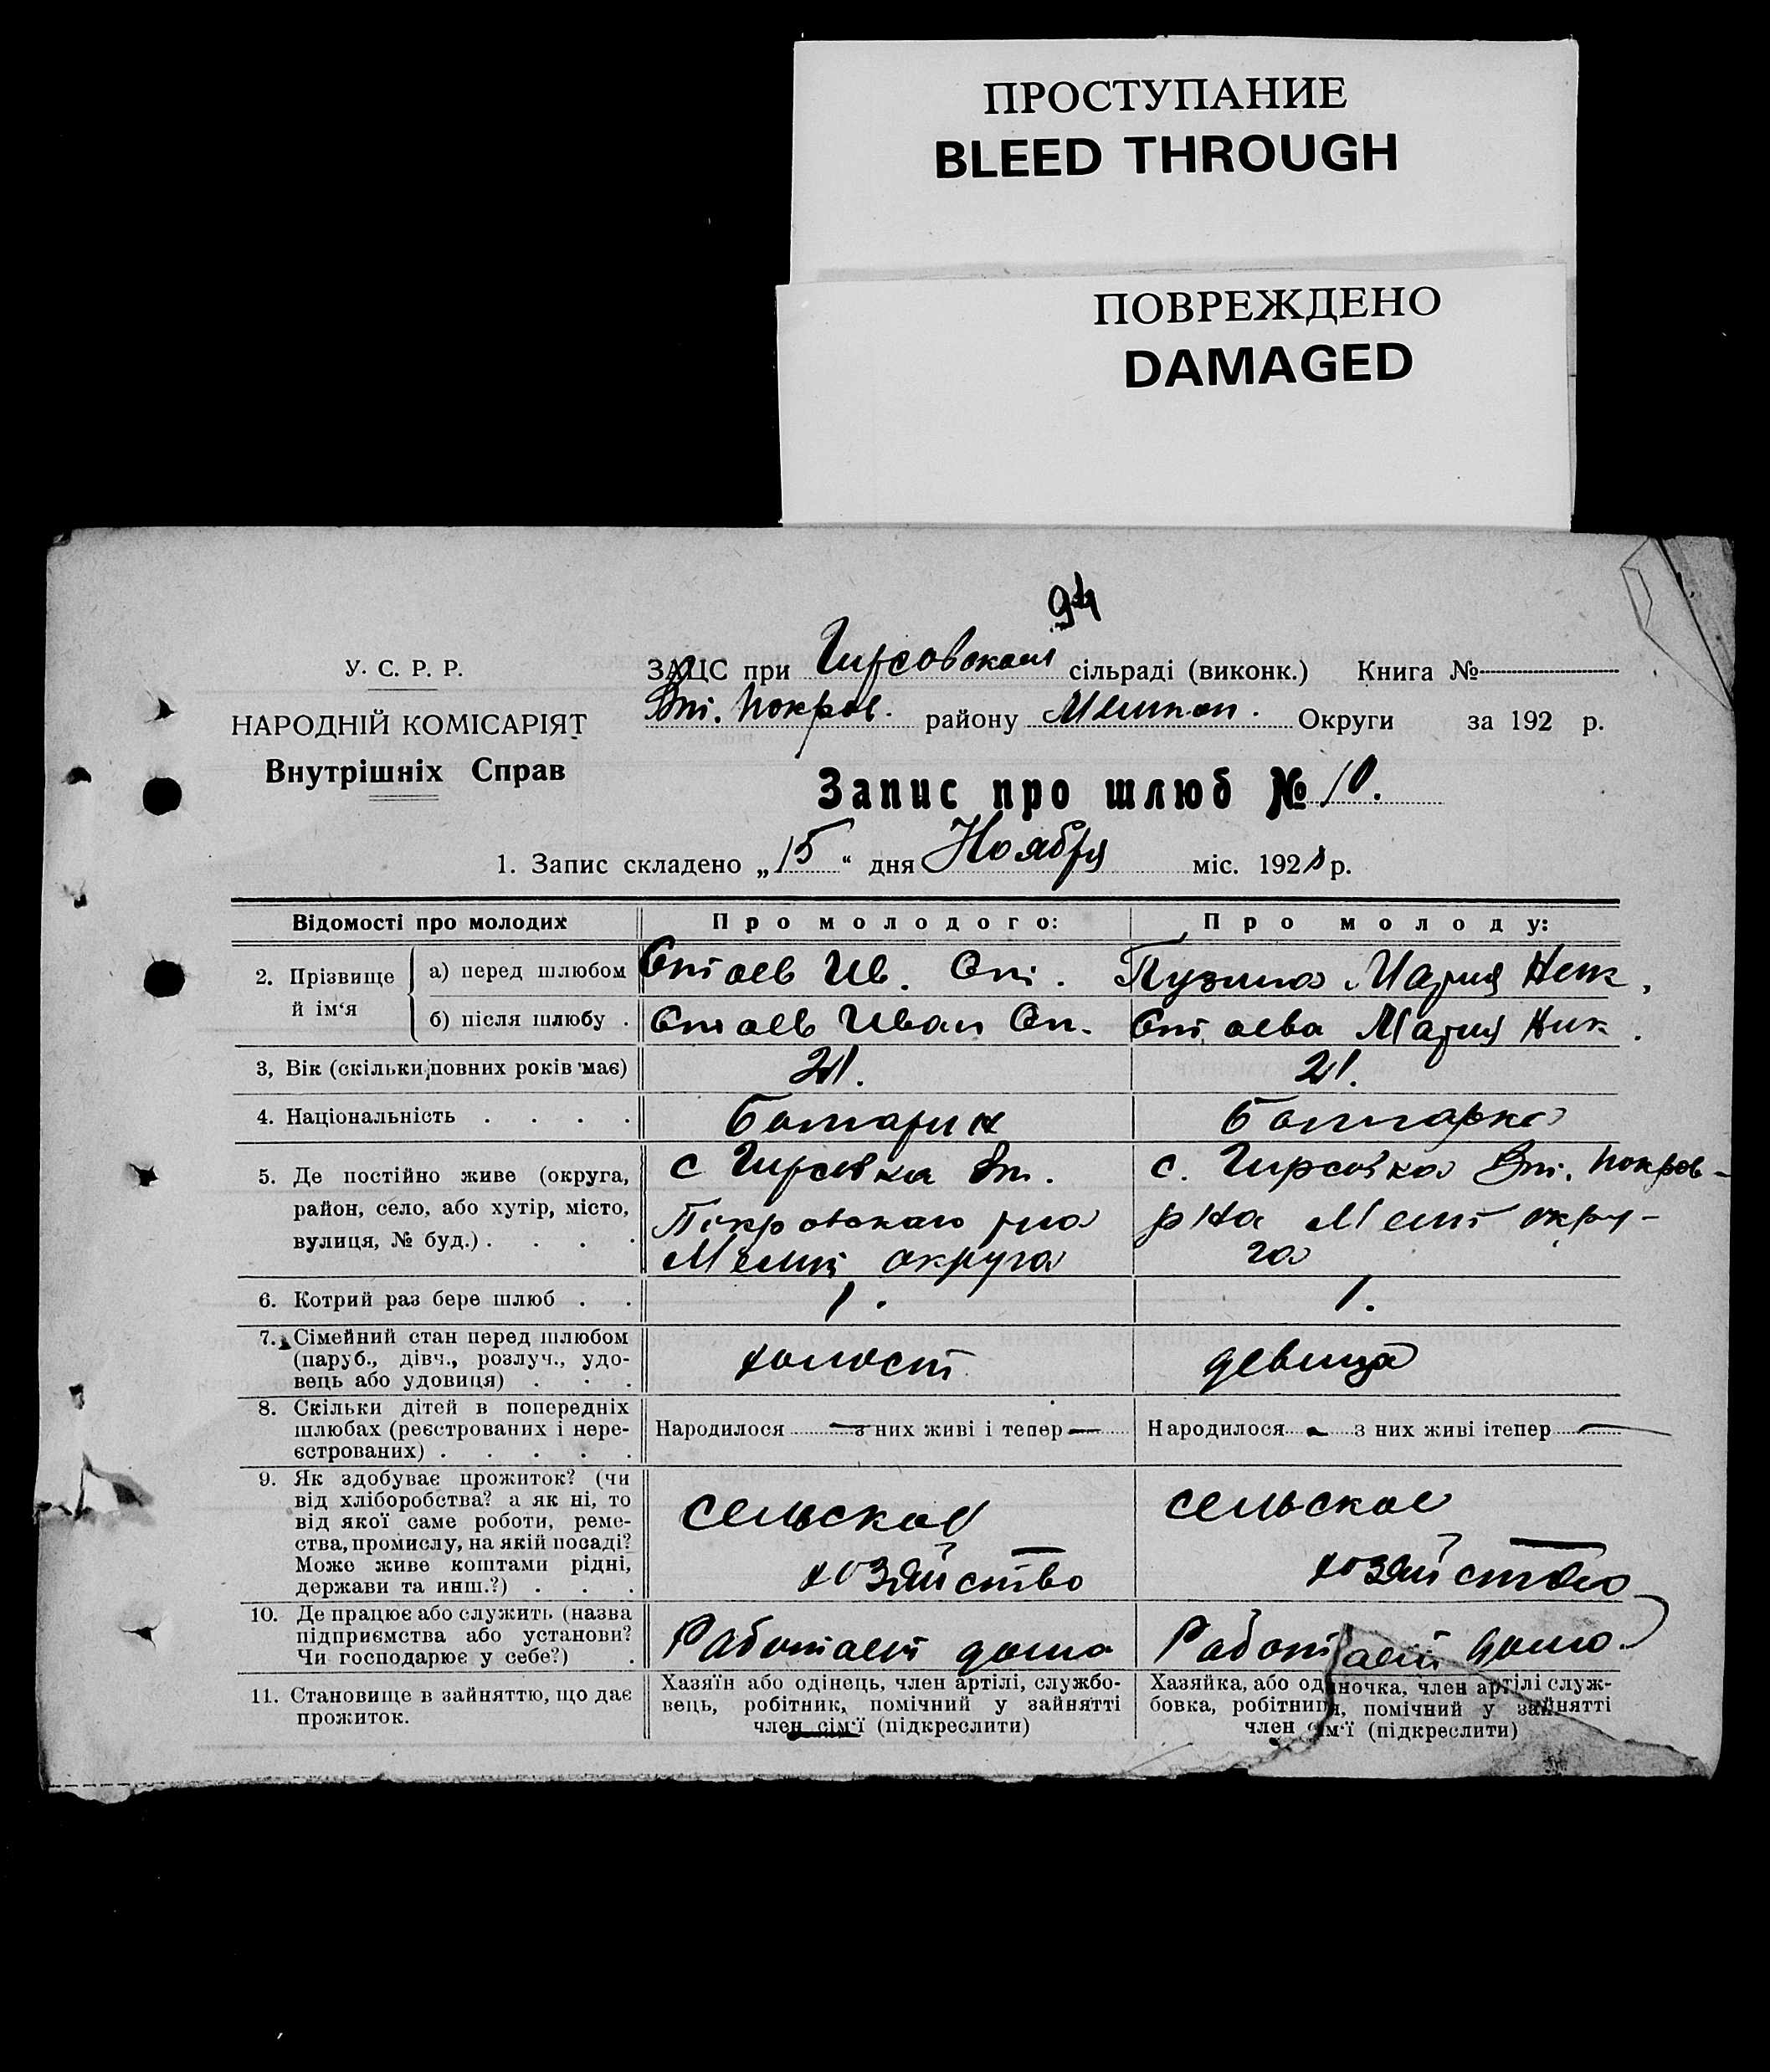 ПРОСТУПАНИЕ
BLEED THROUGH
ПОВРЕЖДЕНО
DAMAGED
94
У. С. Р. Р.
ЗАЦС при Гирсовском сільраді (виконк.) Книга №
Вт. Покров. району Мелитоп. Округи за 192 р.
НАРОДНІЙ КОМІСАРІЯТ
Внутрішніх Справ
Запис про шлюб № 10.
1. Запис складено „15“ дня Ноября міс. 192 р.
Відомості про молодих Про молодого: Про молоду:
2. Прізвище й ім‘я
а) перед шлюбом Ив. Ст. Пузина Мария Ник.
б) після шлюбу . Иван Ст. Мария Ник.
3, Вік (скільки повних років має) 21. 21.
4. Національність . . . . Болгарин Болгарка
5. Де постійно живе (округа, с Гирсовка Вт. с. Гирсовка Вт. Покров-
район, село, або хутір, місто, Покровского р-на р-на Мелит окру-
вулиця, № буд.) . . . . Мелит округа га
6. Котрий раз бере шлюб . . 1. 1.
7. Сімейний стан перед шлюбом
(паруб., дівч., розлуч., удо- холост девица
вець або удовиця) . . .
8. Скільки дітей в попередніх
шлюбах (реєстрованих і нере- Народилося — з них живі і тепер — Народилося — з них живі ітепер —
єстрованих) . . . . .
9. Як здобуває прожиток? (чи
від хліборобства? а як ні, то сельское сельское
від якої саме роботи, реме-
ства, промислу, на якій посаді?
Може живе коштами рідні, хозяйство хозяйство
держави та инш.?) . . .
10. Де працює або служить (назва
підприємства або установи? Работает дома Работает дома
Чи господарює у себе?) .
11. Становище в зайняттю, що дає прожиток.
Хазяїн або одінець, член артілі, службо-
вець, робітник, помічний у зайнятті
член сім‘ї (підкреслити)
Хазяйка, або одиночка, член артілі служ-
бовка, робітниця, помічний у зайнятті
член сім‘ї (підкреслити)